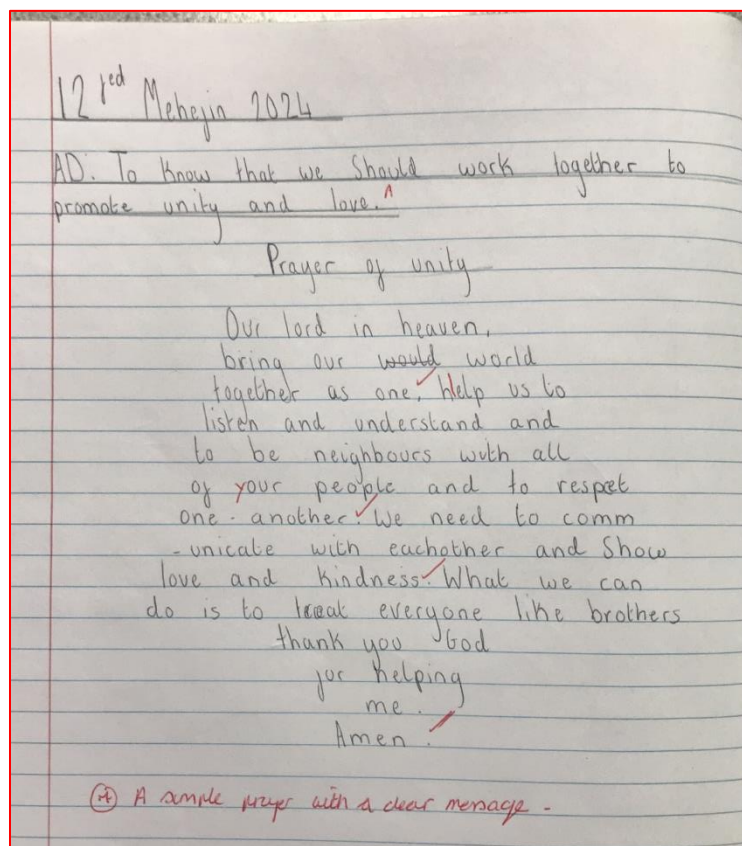 12fed Mehejin 2024
AD: To know that we should work together to
promote unity and love. A
Prayer of unity
Our lord in heaven,
bring our would world
together as one. Help us to
listen and understand and
to be neighbours with all
of your people and to respet
one another. We need to comm
-unicate with eachother and Show
love and kindness. What we can
do is to treat everyone like brothers
thank you God
for helping
me.
Amen.
A A simple prayer with a clear message.